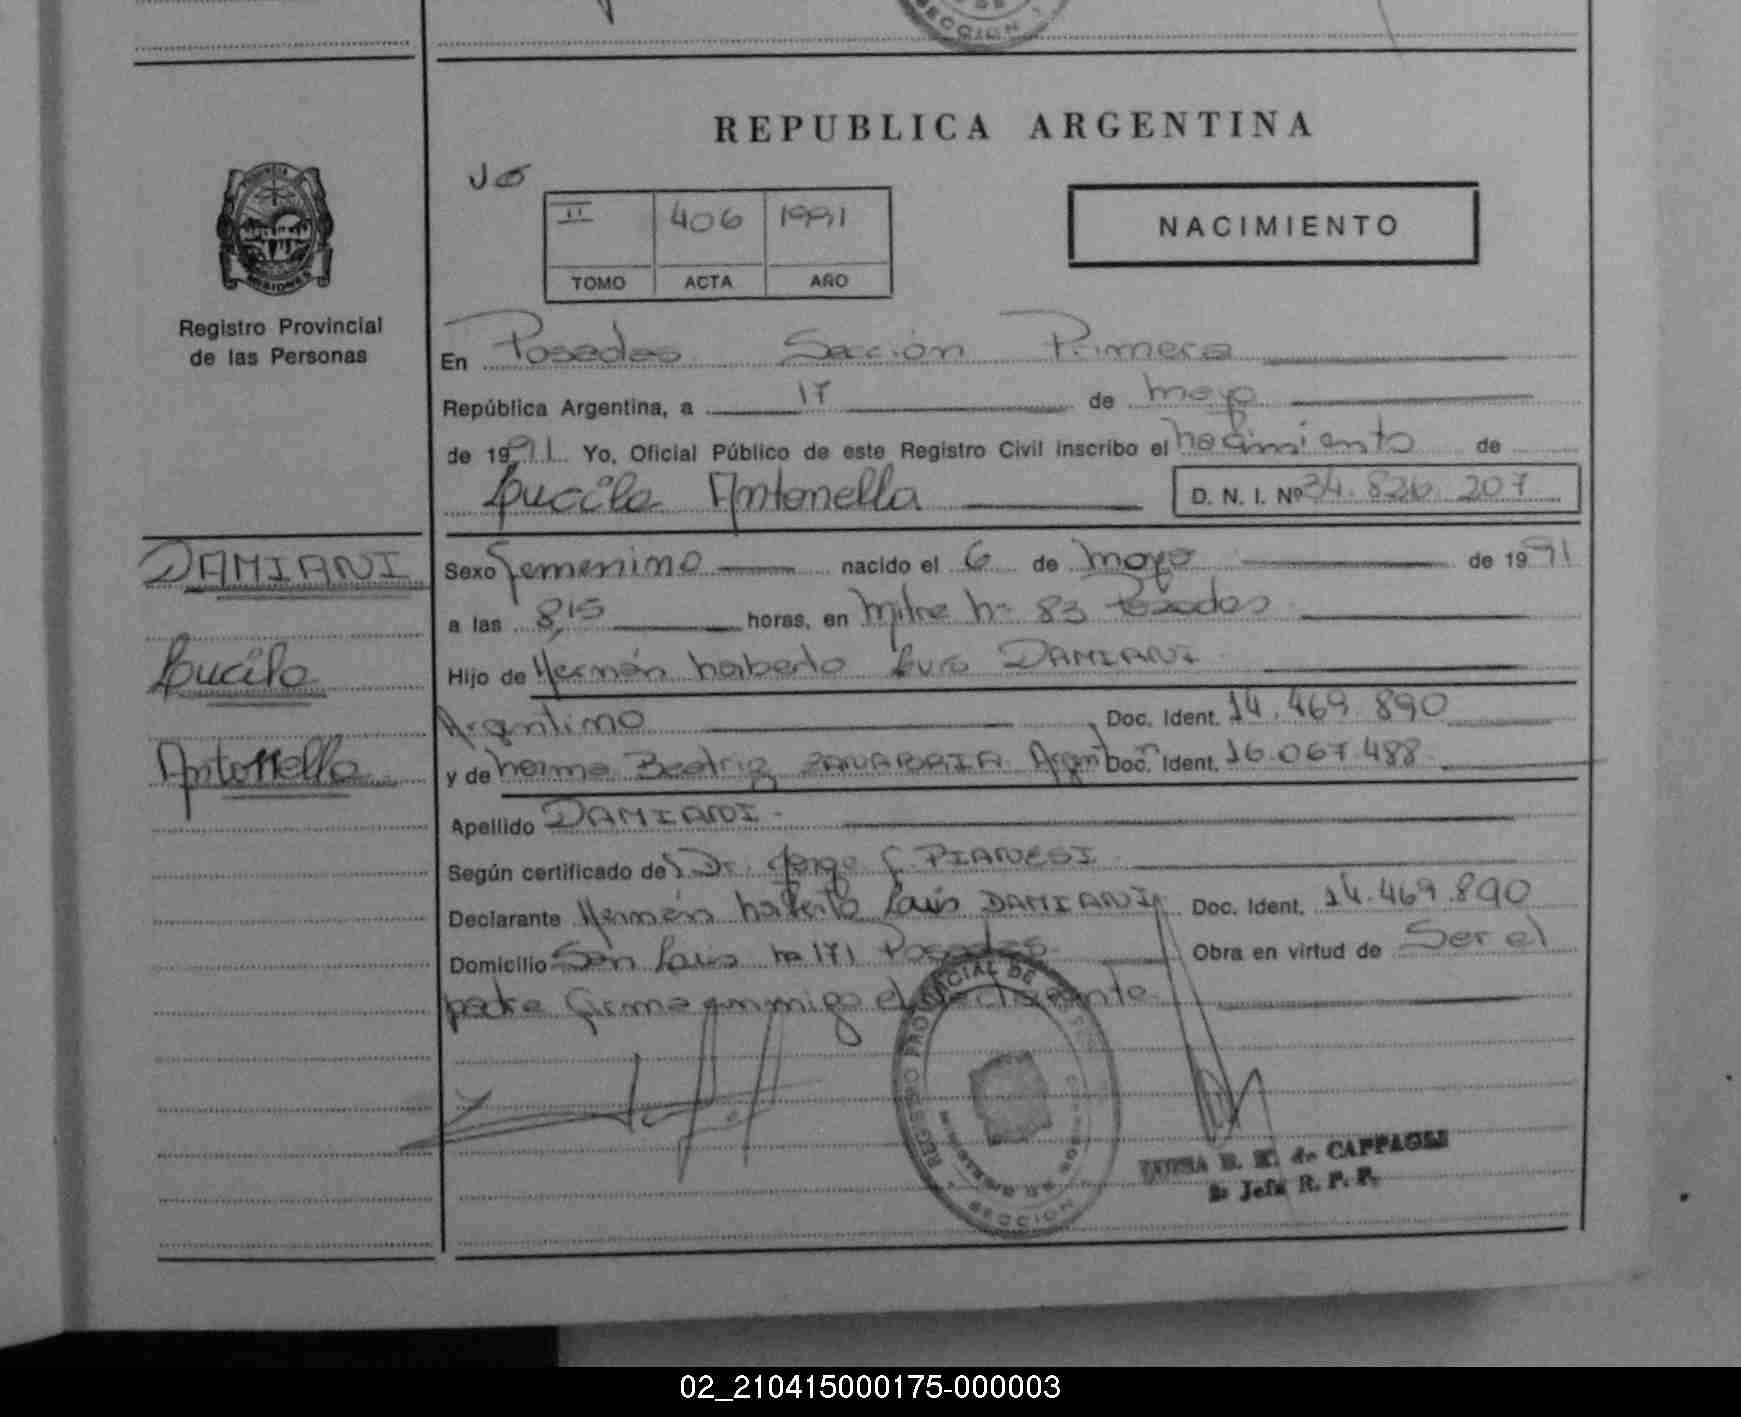 SECCION 1
REPUBLICA ARGENTINA
II 406 1991
TOMO ACTA AÑO
NACIMIENTO
Registro Provincial
de las Personas
En Posadas Sección Primera
República Argentina, a 17 de mayo
de 1991 Yo, Oficial Público de este Registro Civil inscribo el nacimiento de
Lucila Antonella D. N. I. Nº 34.826.207
DAMIANI
Lucila
Antonella
Sexo femenino nacido el 6 de mayo de 1991
a las 8,15 horas, en Mitre nº 83 Posadas
Hijo de Hernán Luis DAMIANI
Argentino Doc. Ident. 14.469.890
y de Norma Beatriz ZANABRIA Argent. Doc. Ident. 16.067.488
Apellido DAMIANI
Según certificado del Dr. Jorge C. PIANESI
Declarante Hernán Luis DAMIANI Doc. Ident. 14.469.890
Domicilio San Luis nº 171 Posadas Obra en virtud de Ser el
padre firma conmigo el declarante
REGISTRO PROVINCIAL DE LAS
SECCION
B. K. de CAPPAGLI
Jefa R. P. P.
02_210415000175-000003